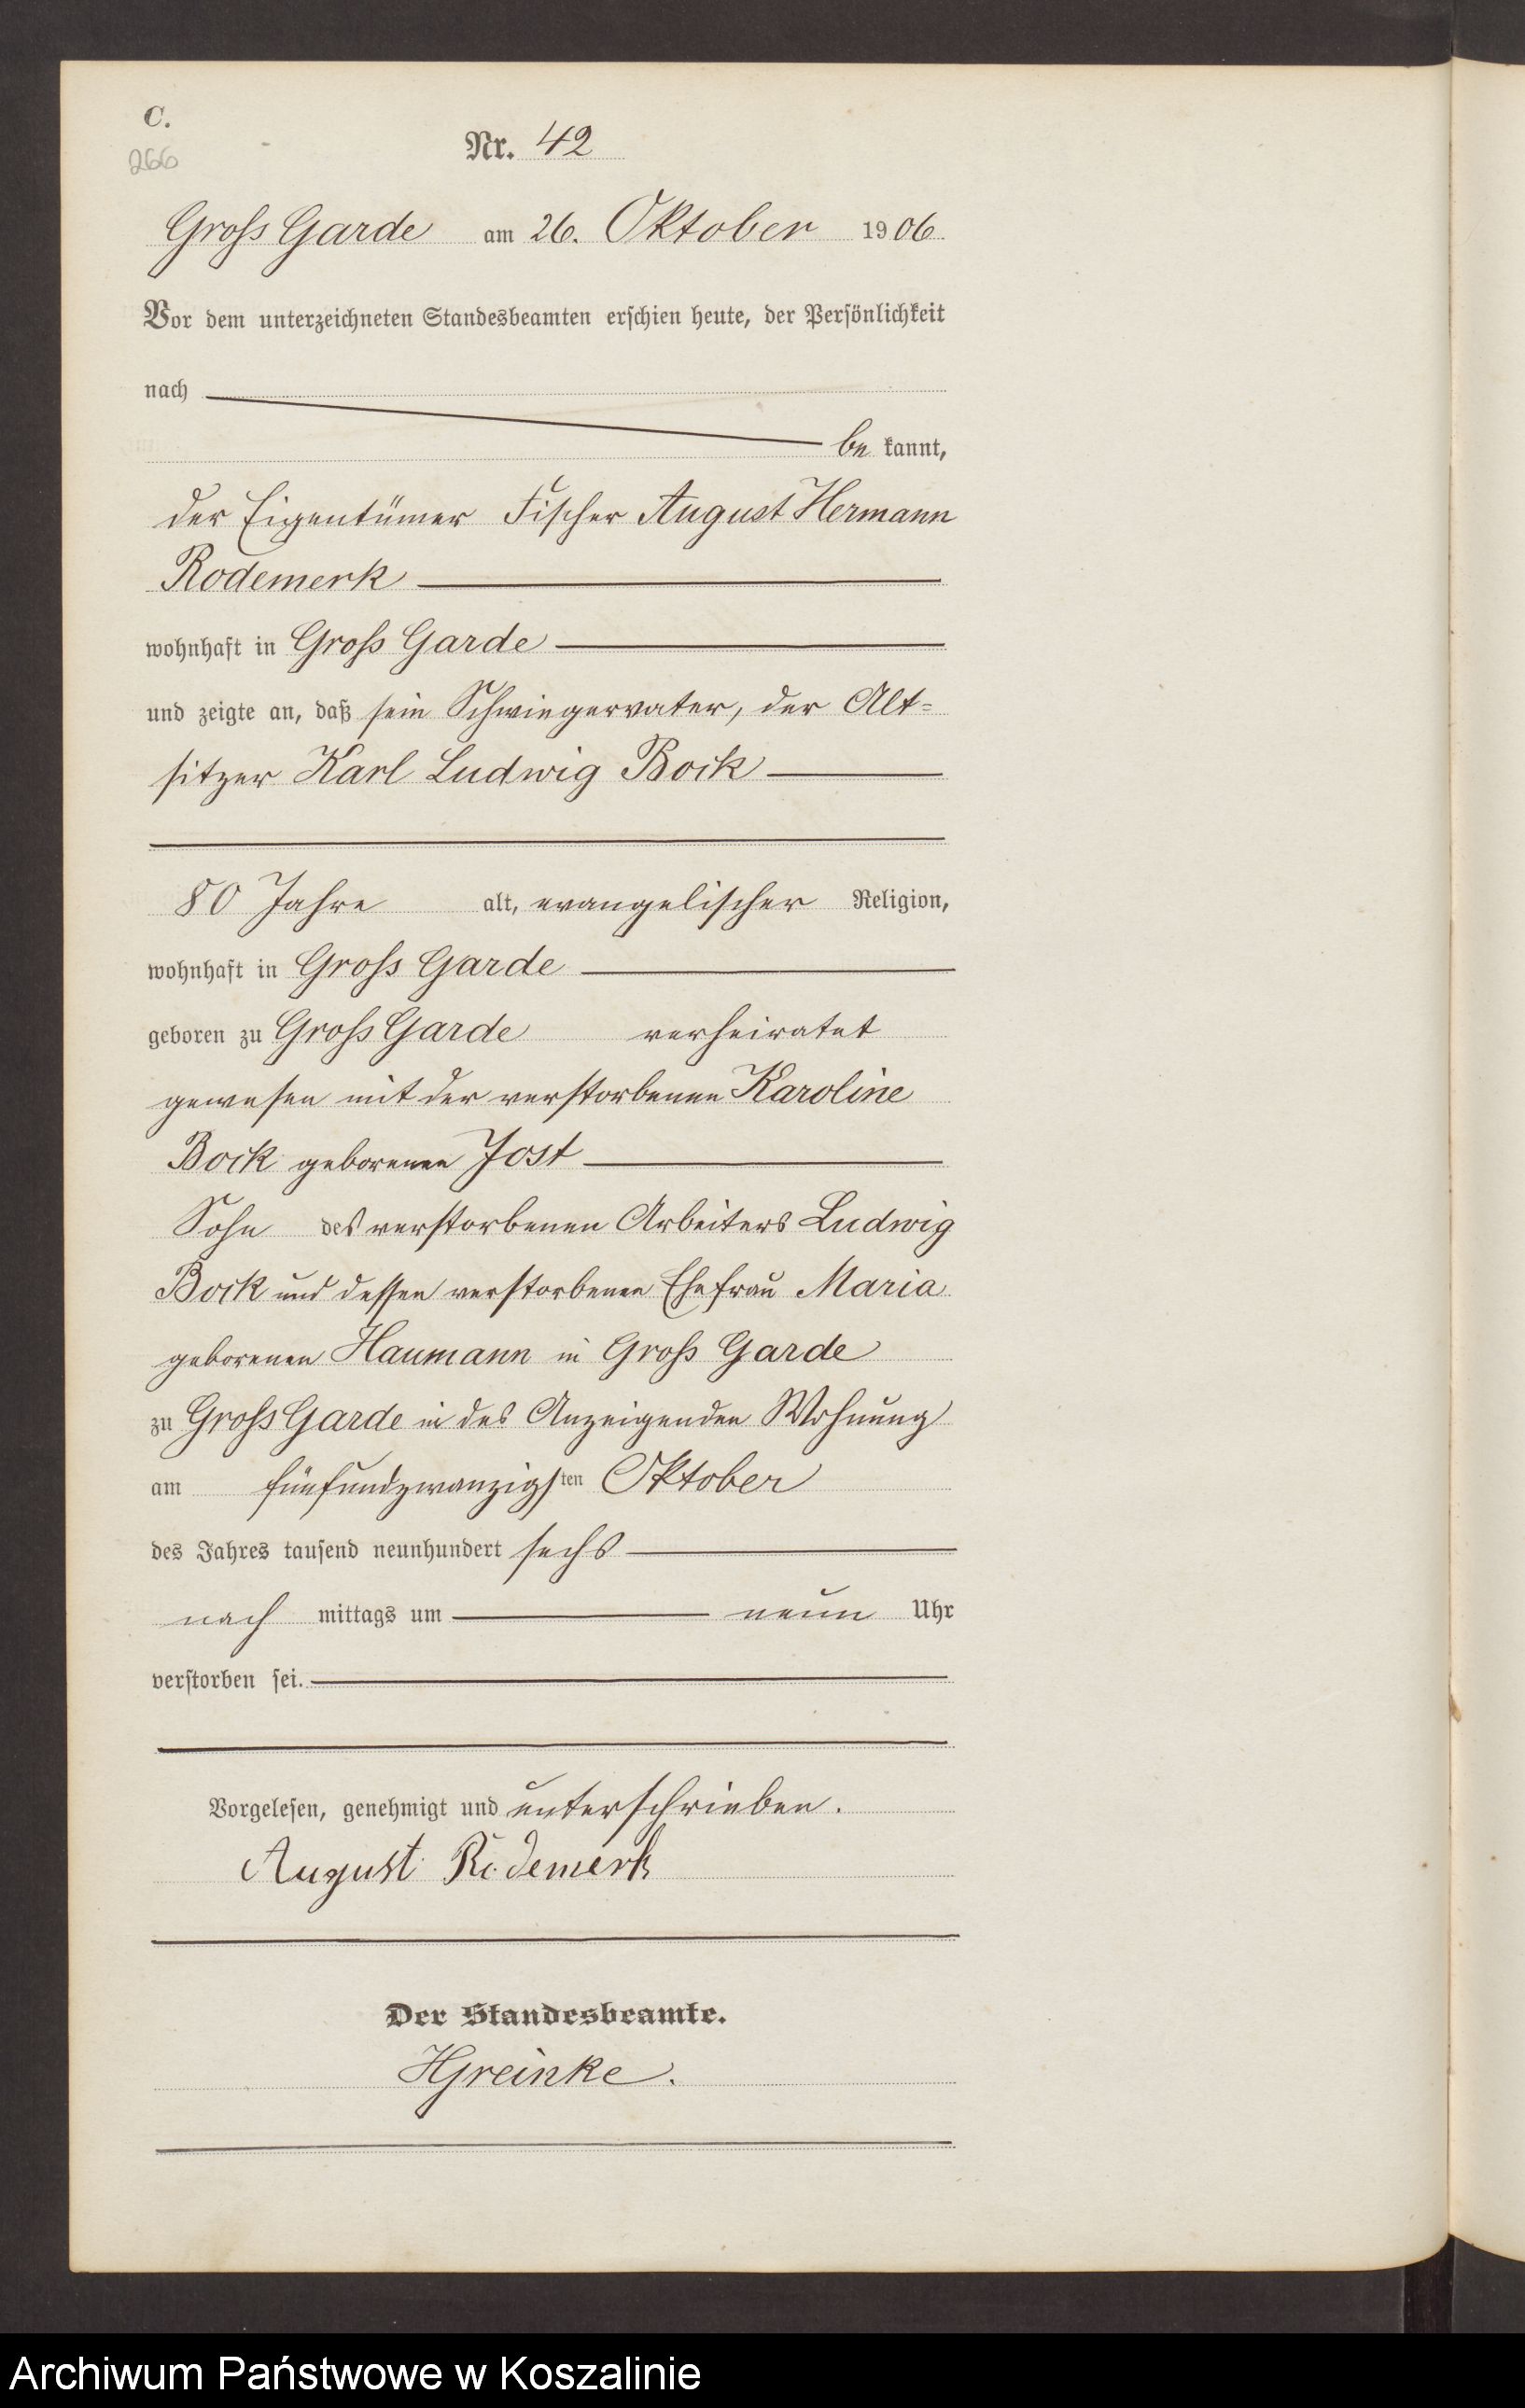 C.
266
Nr. 42
Gross Garde am 26. Oktober 1906.
Vor dem unterzeichneten Standesbeamten erschien heute, der Persönlichkeit
nach
be kannt,
der Eigentümer Fischer August Hermann
Rodemerk
wohnhaft in Gross Garde
und zeigte an, daß sein Schwiegervater, der Alt=
sitzer Karl Ludwig Bock
80 Jahre alt, evangelischer Religion,
wohnhaft in Gross Garde
geboren zu Gross Garde verheiratet
gewesen mit der verstorbenen Karoline
Bock geborenen Jost
Sohn des verstorbenen Arbeiters Ludwig
Bock und dessen verstorbenen Ehefrau Maria
geborenen Haumann in Gross Garde
zu Gross Garde in des Anzeigenden Wohnung
am fünfundzwanzigsten Oktober
des Jahres tausend neunhundert sechs
nach mittags um neun Uhr
verstorben sei.
Vorgelesen, genehmigt und unterschrieben.
August Rodemerk
Der Standesbeamte.
HGreinke.
Archiwum Państwowe w Koszalinie